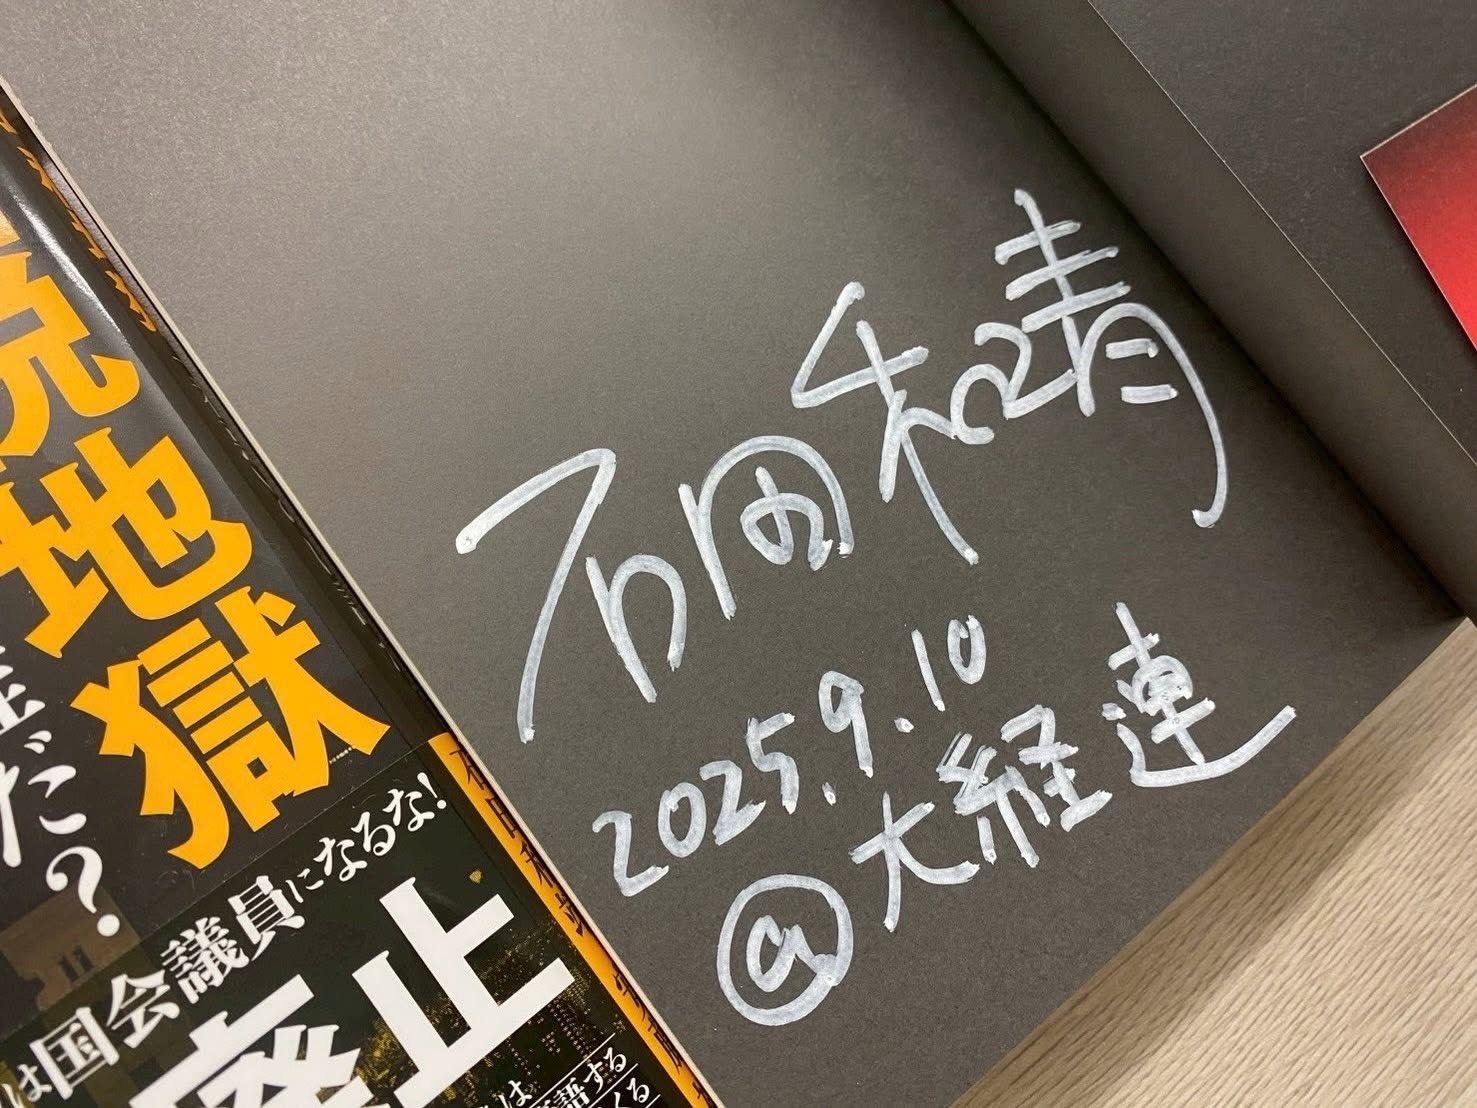 石田和靖
2025.9.10
@大経連
地獄
だ?
は国会議員になるな!
廃止
は
語する
くる